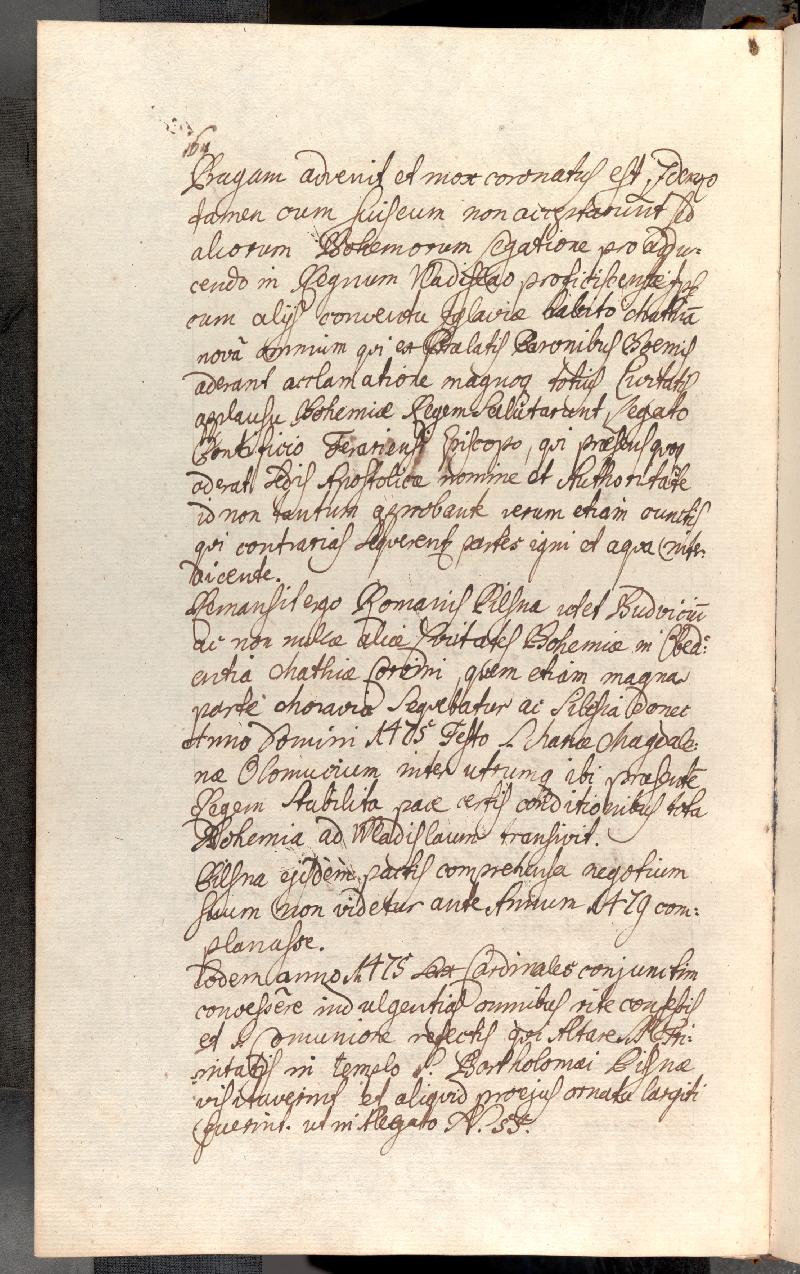 164
Pragam advenit et mox coronatus est, Idcirco
tamen cum suis eum non acceptarunt sed
aliorum Bohemorum Legatione pro addu-
cendo in Regnum Vladislao proficiscente ipse
cum alijs conventu Iglaviæ habito Mathiā
novā omnium qui ex Prælatis Baronibus Boemis
aderant acclamatione magnoq totius Civitatis
applausu Bohemiæ Regem Salutarunt, Legato
Pontificio Ferariensi Episcopo, qui præsens quoq
aderat Sedis Apostolicæ nomine et Authoritate
id non tantum aprobante verum etiam cunctis
qui contrarias sequerent partes igni et aqua inter-
dicente.
Remansit ergo Romanis Pilsna utet Budviciū
ac non nullæ aliæ Civitates Bohemiæ in Obedi-
entia Mathiæ Corvini, quem etiam magna
parte Moravia Sequebatur ac Silesia Donec
Anno Domini 1475 Festo S. Mariæ Magdale:
næ Olomucium inter utrumq ibi præsente
Regem Stabilita pace certis conditionibus tota
Bohemia ad Wladislaum transivit.
Pilsna ejsdem pactis comprehensa negotium
suum non videtur ante Annum 1479 com:
planasse.
Eodem anno 1475 Cardinales conjunctim
concessēre indulgentias omnibus rite confessis
et S. Comunione refectis qui Altare SS Tri-
nitatis in templo S. Bartholomæi Pilsnæ
visitaverint et aliquid pro ejus ornatu largiti
fuerint. ut in Allegato N. 55.